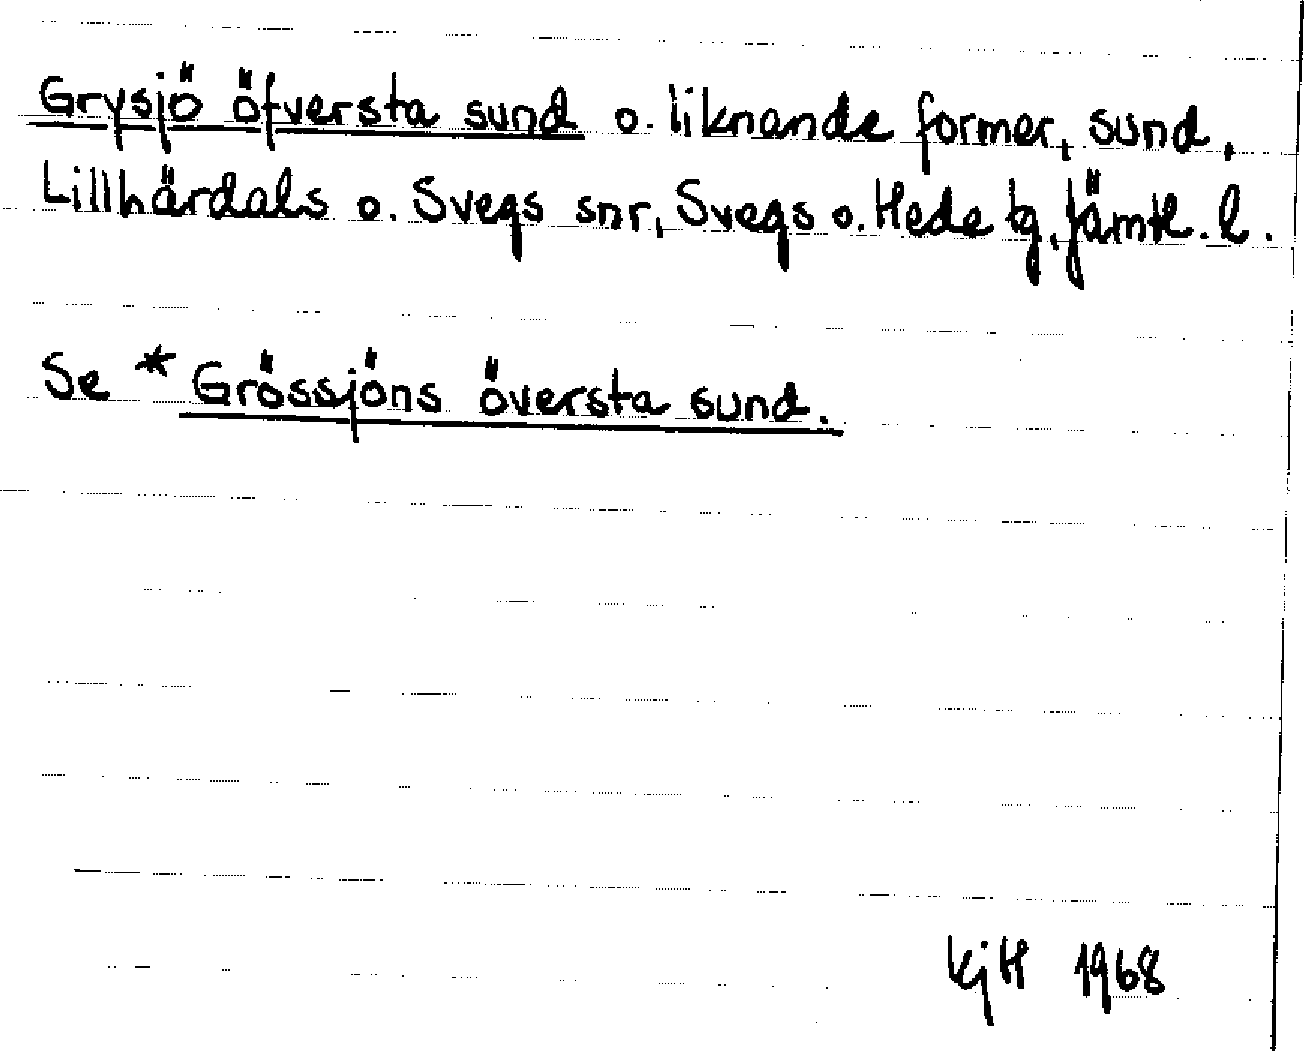 Grysjö öfversta sund o. liknande former, sund,
Lillhärdals o. Svegs snr, Svegs o. Hede tg, Jämtl. l.
Se * Grössjöns översta sund.
KjH 1968